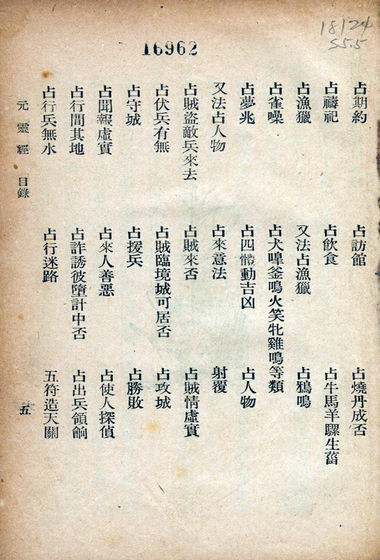 16962
18124
S5.5
占期約 占訪館 占燒丹成否
占禱祀 占飲食 占牛馬羊騾生菑
占漁獵 又法占漁獵 占鴉鳴
占雀噪 占犬嘷釜鳴火笑牝雞鳴等類
占夢兆 占四體動吉凶 占人物
又法占人物 占來意法 射覆
占賊盜敵兵來去 占賊來否 占賊情虛實
占伏兵有無 占賊臨境城可居否 占攻城
占守城 占援兵 占勝敗
占聞報虛實 占來人善惡 占使人探偵
占行間其地 占詐誘彼墮計中否 占出兵領餉
占行兵無水 占行迷路 五符造天關
元靈經 目錄 五